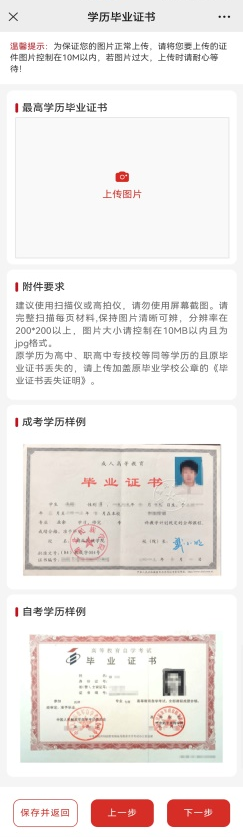 学历毕业证书
温馨提示：为保证您的图片正常上传，请将您要上传的证
件图片控制在10M以内，若图片过大，上传时请耐心等
待！
最高学历毕业证书
上传图片
附件要求
建议使用扫描仪或高拍仪，请勿使用屏幕截图。请
完整扫描每页材料,保持图片清晰可辨，分辨率在
200*200以上，图片大小请控制在10MB以内且为
jpg格式。
原学历为高中、职高中专技校等同等学历的且原毕
业证书丢失的，请上传加盖原毕业学校公章的《毕
业证书丢失证明》。
成考学历样例
成人高等教育
毕业证书
自考学历样例
高等教育自学考试
毕业证书
保存并返回
上一步
下一步